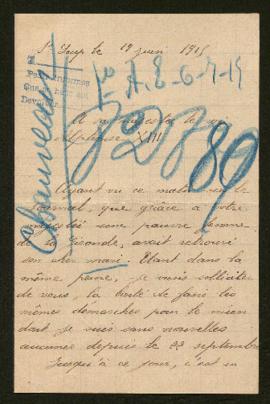 St Loup le 19 juin 1915
1º A. E-6-7-15
A sa majesté le roi
Alphonse XIII
72789
Ayant vu ce matin sur le
journal, que grâce à votre
majesté une pauvre femme
de la Gironde, avait retrouvé
son cher mari. Etant dans la
même peine, je viens solliciter
de vous, la bonté de faire les
mêmes démarches pour le mien
dont je suis sans nouvelles
aucunes depuis le 22 septembre
Jusqu'à ce jour, c'est en